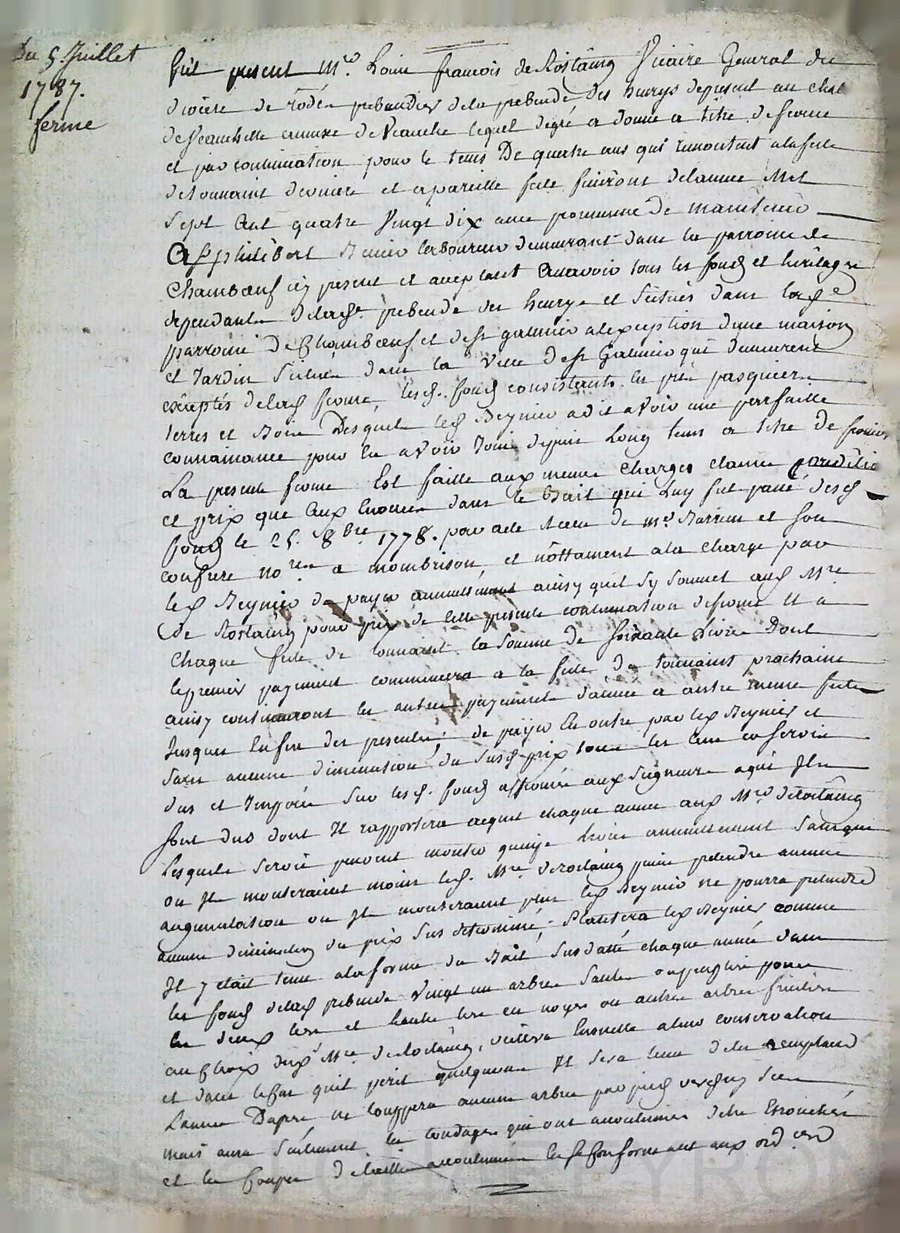 Du 5 Juillet
1787.
ferme
fut present Mre Louis francois de Rostaing Vicaire General du
diocese de rodez prebendier de la prebende des heurys depresent au chat
de Veauchette annexe de Veauche lequel degré a donné a titre de ferme
et par continuation pour le tems De quatre ans qui remontent a la fete
de toussaint derniere et a pareille fete finiront de lannée Mil
Sept Cent quatre Vingt dix avec promesse de maintenir
A Sr philibert Reynier laboureur demeurant dans la parroisse de
Chambœuf icy present et acceptant a avoir tous les fonds et heritages
dependants de lad. prebende des heurys et Situés dans lad.
parroisse de Chambœuf et de St galmier a lexception dune maison
et Jardin Situé dans la Ville de St Galmier qui demeurent
exceptés de lad. ferme, lesd. fonds consistants en prés pasquiers
terres et Bois Desquels led. Reynier a dit avoir une parfaite
connaissance pour en avoir Joui depuis Long tems a titre de fermier
La presente ferme Est faitte aux memes charges clauses conditions
et prix que Ceux Enoncés dans le Bail qui Luy fut passé desd.
fonds le 25 8bre 1778. par acte recu de me Barrieu et son
confrere nores a monbrison, et nottament a la charge par
led. Reynier de payer annuellement ainsy quil Sy Soumet aud. Mre
de Rostaing pour prix de cette presente continuation de ferme Et a
Chaque fete de toussaint la Somme de Soixante Livres Dont
le premier payement commencera a la fete de toussaint prochaine
ainsy continueront les autres payements dannée a autre meme fete
Jusques En fin des presentes. de payer En outre par led. Reynier et
Sans aucune diminution du Susd. prix tous les cens et servis
dus et Imposés Sur lesd. fonds affermés aux Seigneurs a qui Ils
Sont dus dont Il rapportera acquit chaque année aud. Mre de Rostaing
Lesquels servis peuvent monter quinze livres annuellement Sans que
ou Ils monteraient moins led. Mre de rostaing puisse pretendre aucune
augmentation ou Ils monteraient plus led. Reynier ne pourra pretendre
aucune diminution du prix Sus determiné. Plantera led. Reynier comme
Il y etait tenu a la forme du Bail Susdatté chaque année dans
les fonds de lad. prebende Vingt un arbres Saules ou peupliers pour
les deux tiers et lautre tiers en noyers ou autres arbres fruitiers
au Choix dud. Mre de Rostaing, veillera Ensuitte a leur conservation
et dans le Cas quil perit quelquun Il sera tenu de les remplacer
Lannée Dapres ne Couppera aucun arbre par pied verd ny Sec
mais aura Seulement les tondages qui ont accoutumés detre Ebranchés
et les Couper dicelle accoutumée En se Conformant aux ord